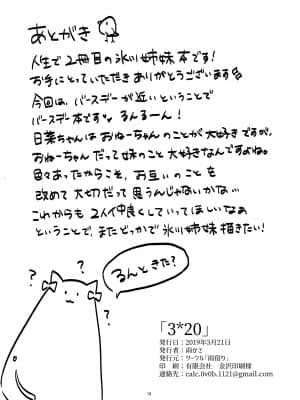 あとがき
人生で2冊目の氷川姉妹本です！
お手にとっていただきありがとうございます
今回は、バースデーが近いということで
バースデー本です るんるーん！
日菜ちゃんはおねーちゃんのことが大好きですが、
おねーちゃんだって妹のこと大好きなんですよね。
色々あったからこそ、お互いのことを
改めて大切だって思うんじゃないかな…
これからも2人仲良くしていってほしいなぁ
ということで、またどっかで氷川姉妹描きたい！
? ? ? ?
るんときた?
「3*20」
発行日：2019年3月21日
発行者：雨かさ
発行元：サークル「雨宿り」
印 刷：有限会社 金沢印刷様
連絡先：calc.0v0b.1121@gmail.com